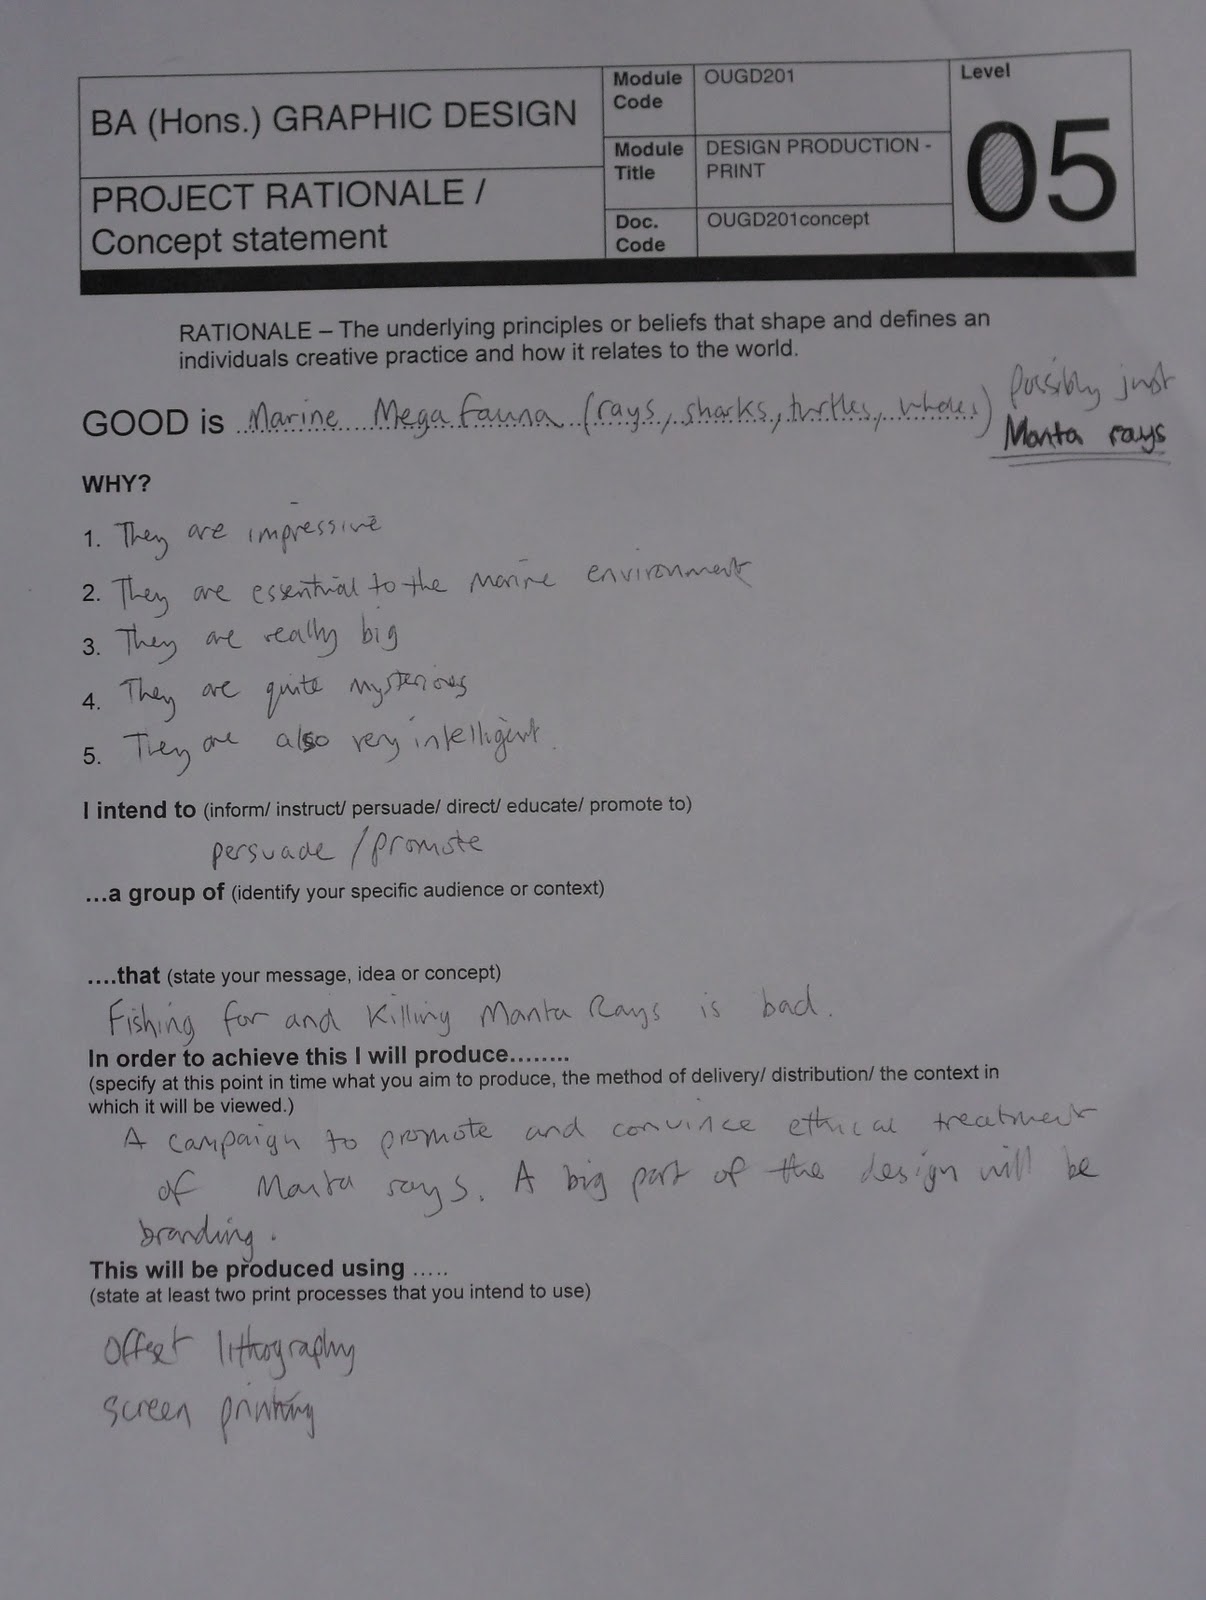 BA (Hons.) GRAPHIC DESIGN
PROJECT RATIONALE /
Concept statement
Module Code
OUGD201
Module Title
DESIGN PRODUCTION - PRINT
Doc. Code
OUGD201concept
Level
05
RATIONALE – The underlying principles or beliefs that shape and defines an
individuals creative practice and how it relates to the world.
GOOD is Marine Mega fauna (rays, sharks, turtles, whales) Possibly just
Manta rays
WHY?
1. They are impressive
2. They are essential to the marine environment
3. They are really big
4. They are quite mysterious
5. They are also very intelligent.
I intend to (inform/ instruct/ persuade/ direct/ educate/ promote to)
persuade / promote
...a group of (identify your specific audience or context)
....that (state your message, idea or concept)
Fishing for and killing Manta Rays is bad.
In order to achieve this I will produce........
(specify at this point in time what you aim to produce, the method of delivery/ distribution/ the context in
which it will be viewed.)
A campaign to promote and convince ethical treatment
of Manta rays. A big part of the design will be
branding.
This will be produced using .....
(state at least two print processes that you intend to use)
Offset lithography
screen printing